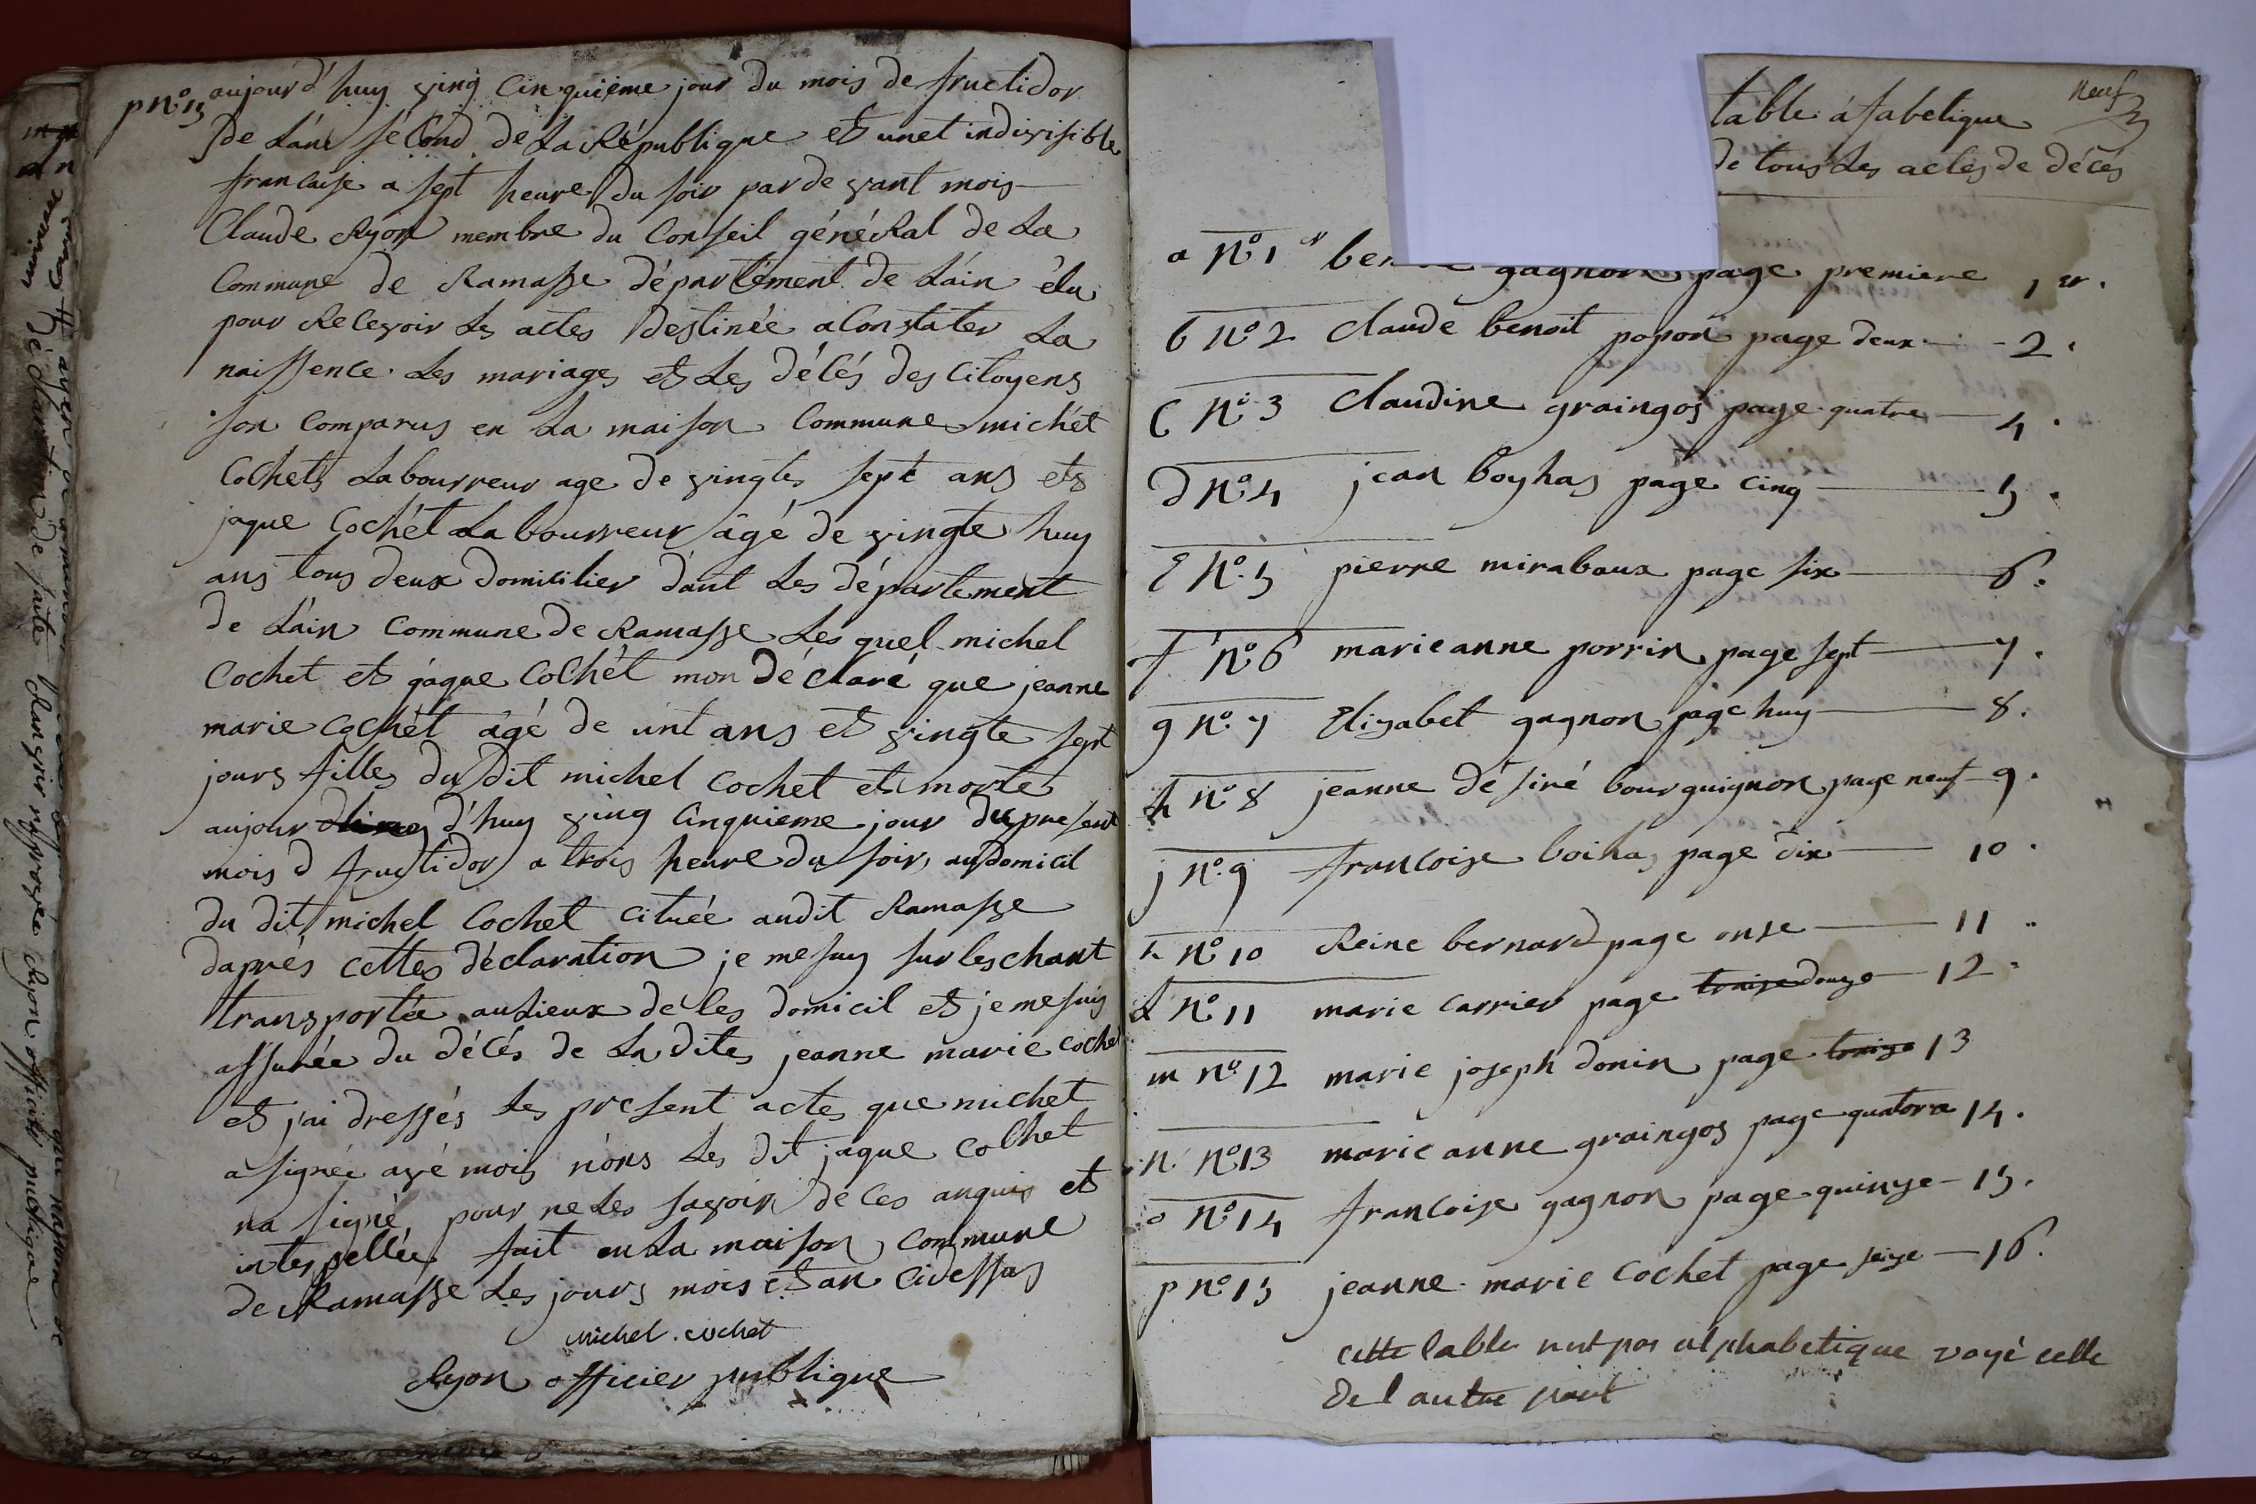 p n.º 15 aujourd'huy ving cinquième jour du mois de fructidor
de láns sécond de La République et unet indivisible
francaise a sept heure du soir pardevant mois
Claude Ryon membre du Conseil généRal de La
Commune de Ramasse département de Láin élu
pour Recevoir Les actes destinée aConstater La
naissence. Les mariages et Les décés des citoyens
son comparus en La maison Commune michét
Cochet Labourreur age de vingts sept ans et
jaque Cochét Labourreur âgé de vingte huy
ans tous deux domicilier dant Les département
de Láin Commune de Ramasse Les quel michel
Cochet et gáque Cochét mon déclaré que jeanne
marie Cochét âgé de unt ans et vingte sept
jours filles du dit michel cochet et morte
aujour d'huy ving Cinquieme jour du présent
mois d fructidor a trois heure du soir, au domicil
du dit michel Cochet cituée audit Ramasse
daprés cettes déclaration je me suy sur les chant
transportée au Lieux de les domicil et je me suis
assurée du décés de La dites jeanne marie coche
et j'ai dressés Les present actes que michet
a signée avé mois nons Les dit jaque Cochet
na signé, pour ne Les savoir de ces anquis et
interpellée fait en La maison commune
de Ramasse Les jours mois et an cidessus
michel. cochet
Ryon officier publique
déclaration de faite
Ryon officier publique
neuf
table áfabetique
de tous Les actes de décés
a N.º 1 er gagnon page premiere 1 er.
b N.º 2 Claude benoit popon page deux - 2.
C N.º 3 Claudine graingos page quatre 4.
d N.º 4 jean boyhas page cinq 5.
E N.º 5 pierre mirabaux page six 6.
f N.º 6 marie anne porrin page sept 7.
g N.º 7 Elizabet gagnon page huy 8.
h N.º 8 jeanne désiré bourguignon page neuf 9.
j N.º 9 francoise boihas page dix 10.
k N.º 10 Reine bernard page onse 11
L N.º 11 marie carrier page traize douze 12
m N.º 12 marie joseph donin page traize 13
n N.º 13 marie anne graingos page quatorze 14.
o N.º 14 francoise gagnon page quinze 15.
p N.º 15 jeanne marie Cochet page seize 16.
cette table nest pas alphabetique voyé celle
de l autre part